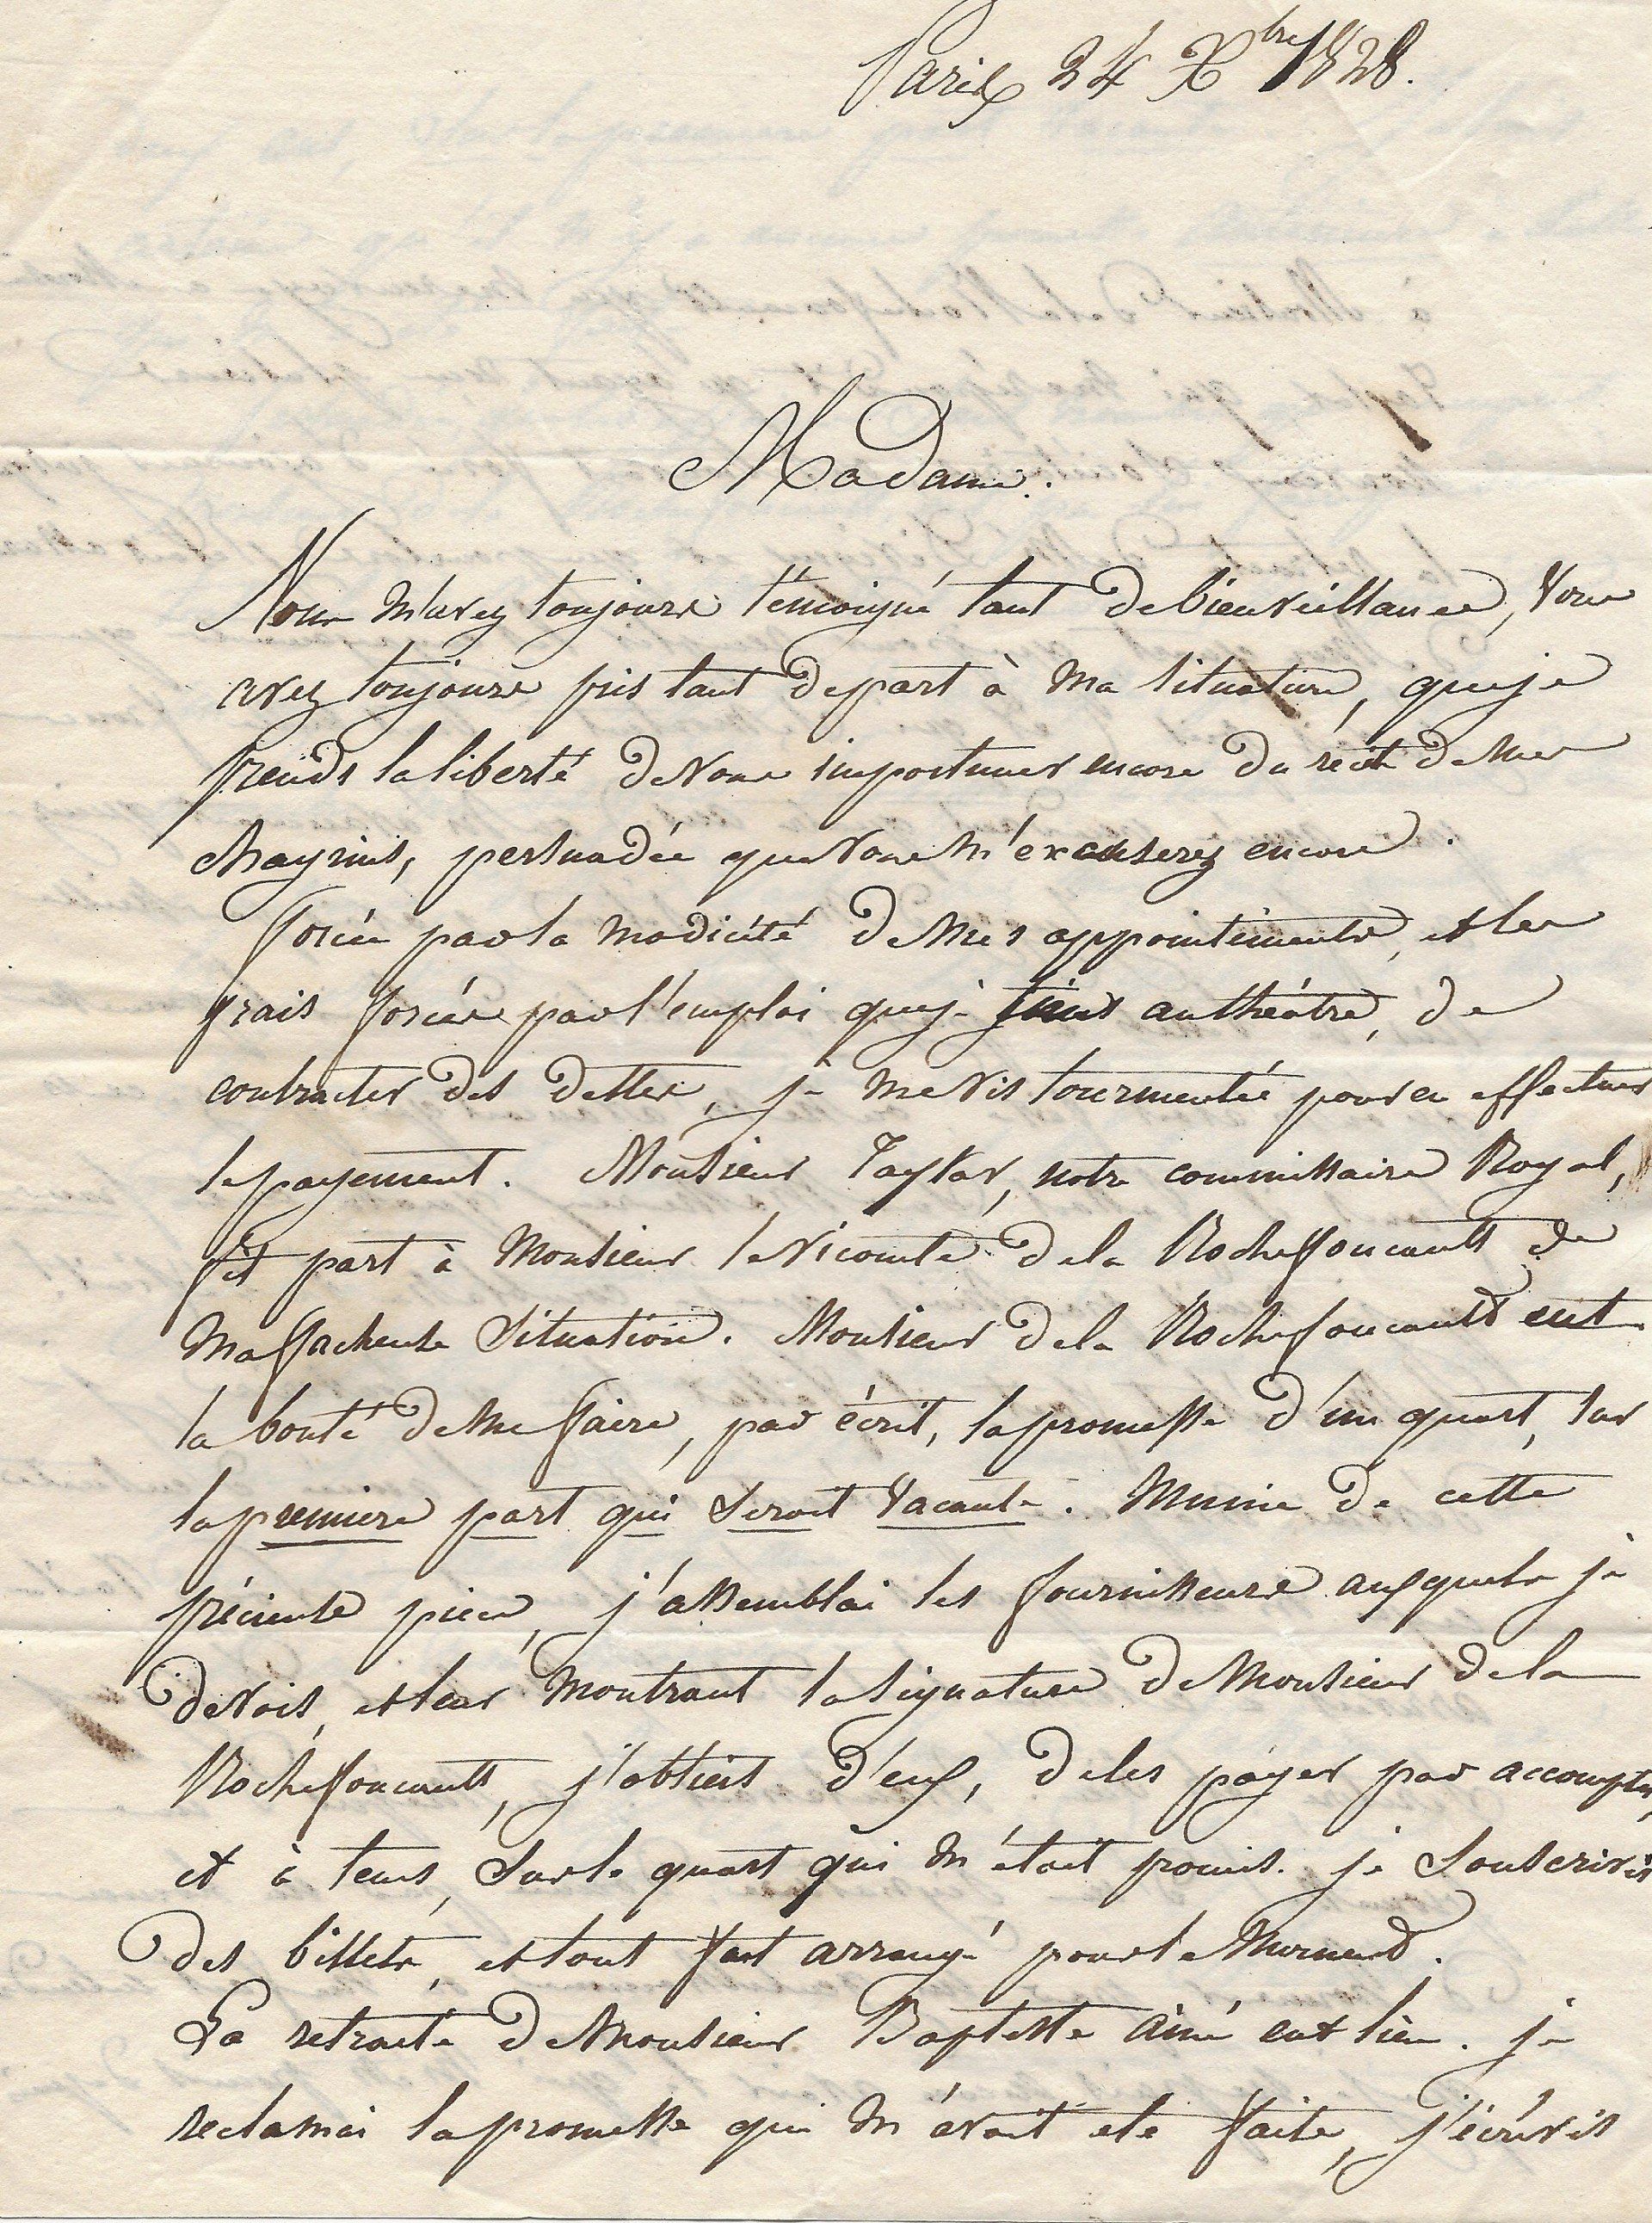 Paris 24 Xbre 1828.
Madame.
Vous m'avez toujours témoigné tant de bienveillance, vous
avez toujours pris tant de part à ma situation, que je
prends la liberté de vous importuner encore du récit de mes
chagrins, persuadée que vous m'excuserez encore.
forcée par la modicité de mes appointements, et les
frais forcés par l'emploi que je tiens au théatre, de
contracter des dettes, je me vis tourmentée pour en effectuer
le payement. Monsieur Taylor, notre commissaire Royal,
fit part à Monsieur le Vicomte de la Rochefoucault de
ma facheuse situation. Monsieur de la Rochefoucault eut
la bonté de me faire, par écrit, la promesse d'un quart, sur
la premiere part qui seroit vacante. Munie de cette
précieuse piece, j'assemblai les fournisseurs auxquels je
devois, et leur montrant la signature de Monsieur de la
Rochefoucault, j'obtiens d'eux, de les payer par accomptes,
et à tems, sur le quart qui m'étoit promis. je souscrivis
des billets, et tout fut arrangé pour le moment.
La retraite de Monsieur Baptiste ainé eut lieu. je
reclamai la promesse qui m'avoit eté faite, j'écrivis